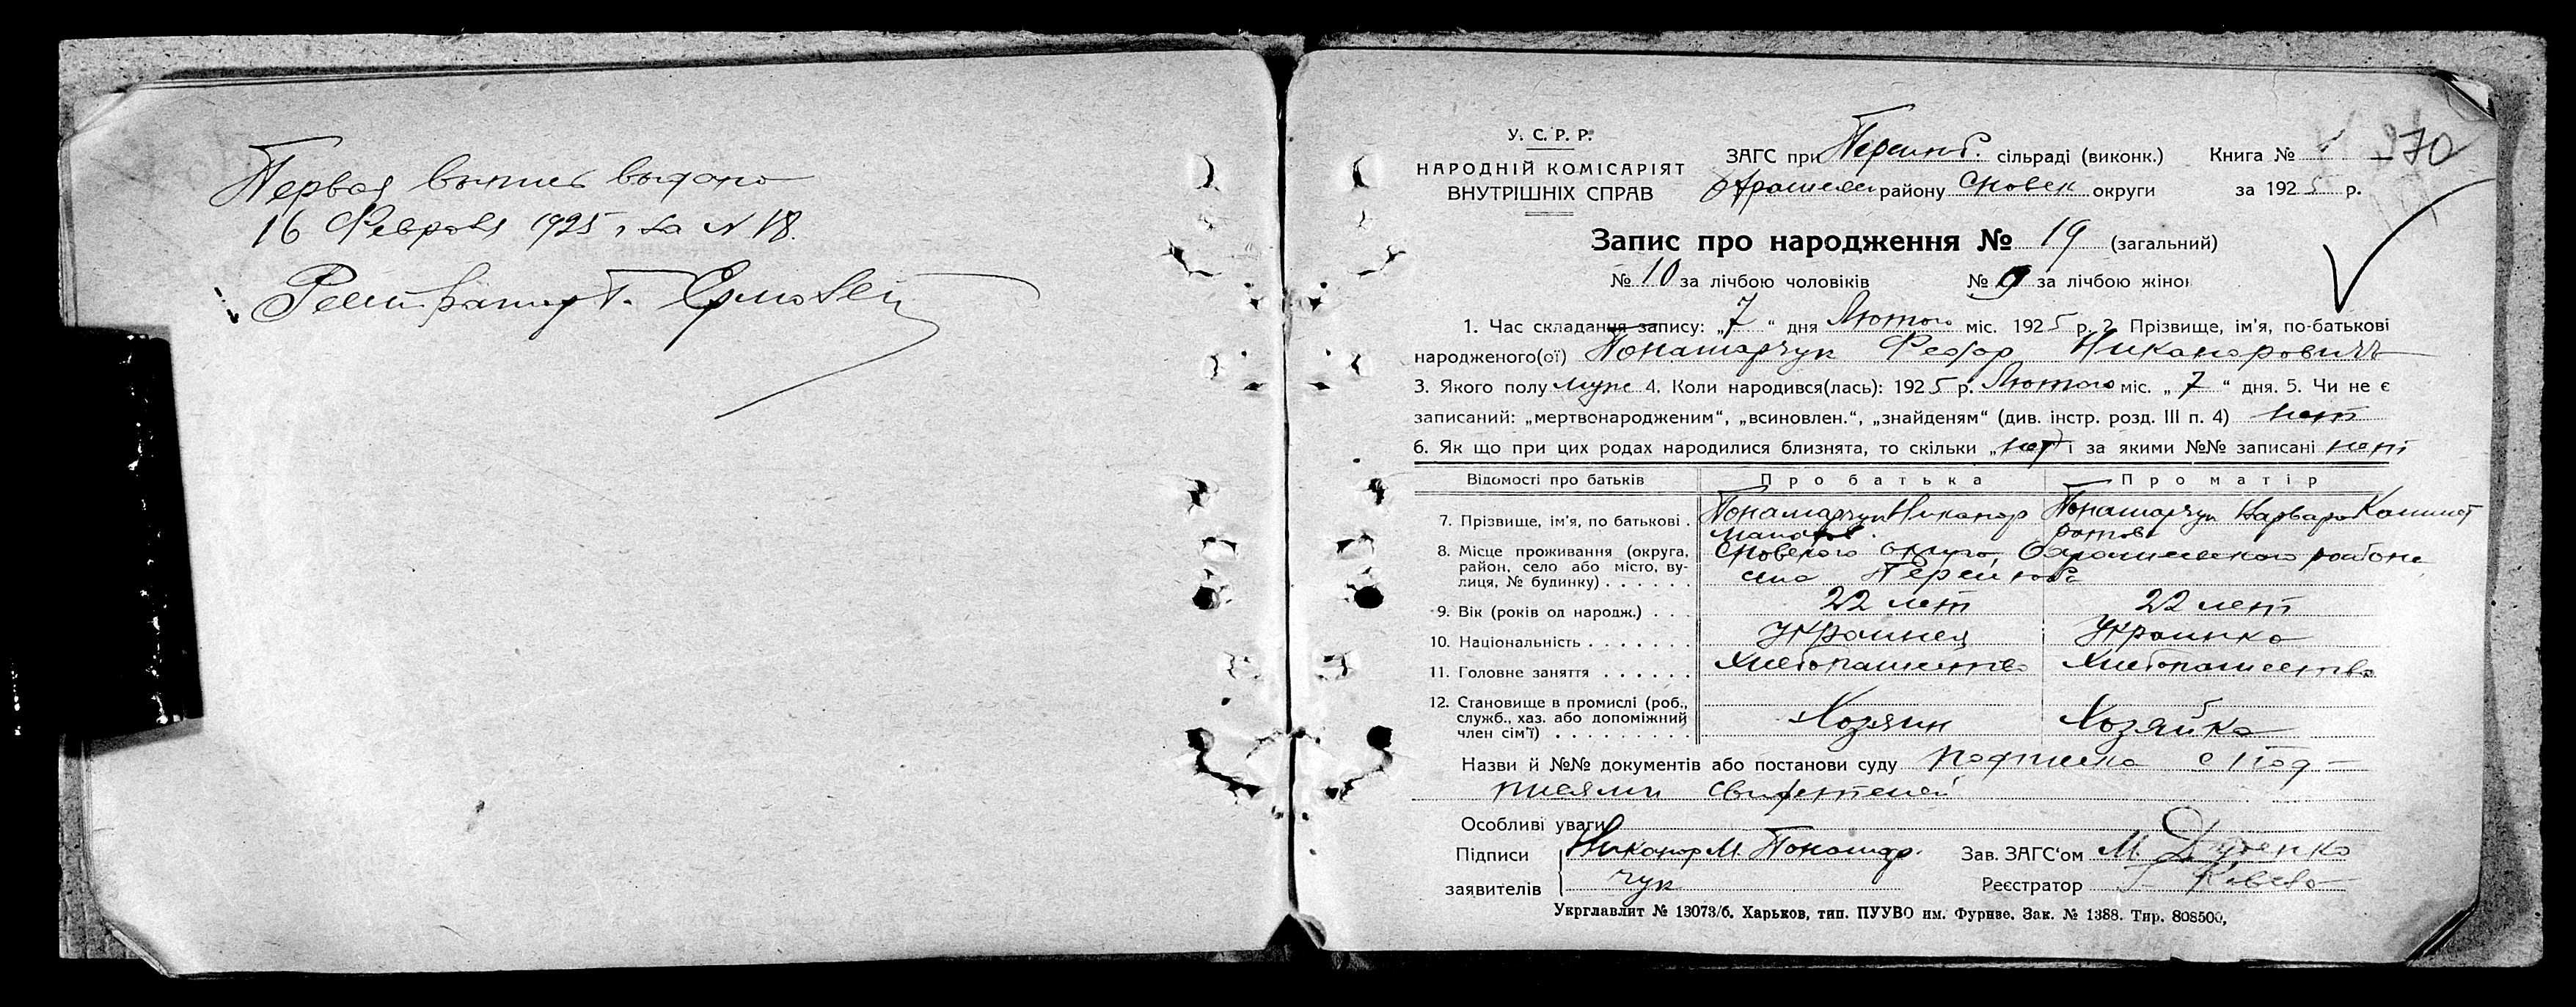 Первая выпись выдана
16 Февраля 1925 г за № 18.
Г. Ермовец
У. С. Р. Р.
НАРОДНІЙ КОМІСАРІЯТ
ВНУТРІШНІХ СПРАВ
ЗАГС при Перелюб. сільраді (виконк.) Книга № 270
району Сновск округи за 1925 р.
Запис про народження № 19 (загальний)
№ 10 за лічбою чоловіків № 9 за лічбою жінок
1. Час складання запису: „7" дня Лютого міс. 1925 р. 2. Прізвище, ім'я, по-батькові
народженого(ої) Понамарчук Федор Никанорович
3. Якого полу муж 4. Коли народився(лась): 1925 р. Лютого міс. „7" дня. 5. Чи не є
записаний: „мертвонародженим", „всиновлен.", „знайденям" (див. інстр. розд. III п. 4) нет
6. Як що при цих родах народилися близнята, то скільки „нет" і за якими №№ записані нет
Відомості про батьків Про батька Про матір
7. Прізвище, ім'я, по батькові . Понамарчук Никанор Понамарчук Варвара
8. Місце проживання (округа, район, село або місто, вулиця, № будинку) . . . . . . Сновского округа, района
села Перелюба
9. Вік (років од народж.) . . . 22 лет 22 лет
10. Національність . . . . . . . Украинец Украинка
11. Головне заняття . . . . . . Хлебопашество Хлебопашество
12. Становище в промислі (роб., служб., хаз. або допоміжний член сім'ї) . . . . . . . . . Хозяин Хозяйка
Назви й №№ документів або постанови суду подписка с под-
писями свидетелей
Особливі уваги
Підписи Никанор М. Понамар- Зав. ЗАГС'ом М. Дуденко
заявителів чук Реєстратор Г.
Укрглавлит № 13073/б. Харьков, тип. ПУУВО им. Фрунзе. Зак. № 1388. Тир. 808500,